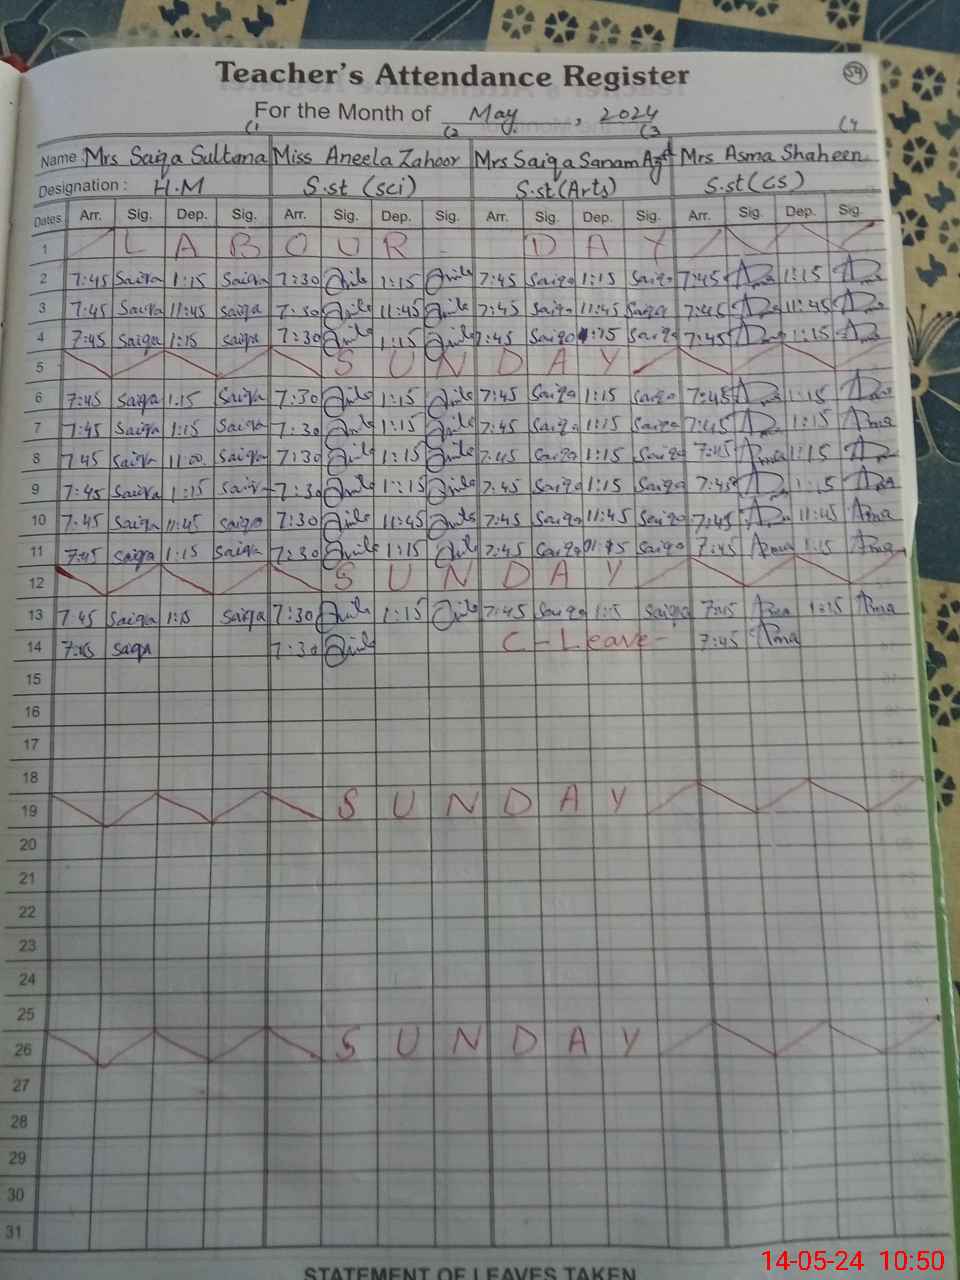 Teacher's Attendance Register 54
For the Month of May, 2024
(1 (2 (3 (4
Name: Mrs Saiqa Sultana Miss Aneela Zahoor Mrs Saiqa Sanam Mrs Asma Shaheen
Designation: H.M S.st (sci) S.st (Arts) S.st (CS)
Dates Arr. Sig. Dep. Sig. Arr. Sig. Dep. Sig. Arr. Sig. Dep. Sig. Arr. Sig. Dep. Sig.
1 L A B O U R D A Y
2 7:45 Saiqa 1:15 Saiqa 7:30 1:15 7:45 Saiqa 1:15 Saiqa 7:45 1:15
3 7:45 Saiqa 11:45 Saiqa 7:30 11:45 7:45 Saiqa 11:45 Saiqa 7:45 11:45
4 7:45 Saiqa 1:15 Saiqa 7:30 1:15 7:45 Saiqa 1:15 Saiqa 7:45 1:15
5 S U N D A Y
6 7:45 Saiqa 1:15 Saiqa 7:30 1:15 7:45 Saiqa 1:15 Saiqa 7:45 1:15
7 7:45 Saiqa 1:15 Saiqa 7:30 1:15 7:45 Saiqa 1:15 Saiqa 7:45 1:15 Asma
8 7:45 Saiqa 11:00 Saiqa 7:30 1:15 7:45 Saiqa 1:15 Saiqa 7:45 Asma 1:15
9 7:45 Saiqa 1:15 Saiqa 7:30 1:15 7:45 Saiqa 1:15 Saiqa 7:45 1:15 Asma
10 7:45 Saiqa 11:45 Saiqa 7:30 11:45 7:45 Saiqa 11:45 Saiqa 7:45 11:45 Asma
11 7:45 Saiqa 1:15 Saiqa 7:30 1:15 7:45 Saiqa Saiqa 7:45 Asma 1:15 Asma
12 S U N D A Y
13 7:45 Saiqa 1:15 Saiqa 7:30 1:15 7:45 Saiqa 1:15 Saiqa 7:45 Asma 1:15 Asma
14 7:45 Saiqa 7:30 C-Leave- 7:45 Asma
15
16
17
18
19 S U N D A Y
20
21
22
23
24
25
26 S U N D A Y
27
28
29
30
31
STATEMENT OF LEAVES TAKEN
14-05-24 10:50